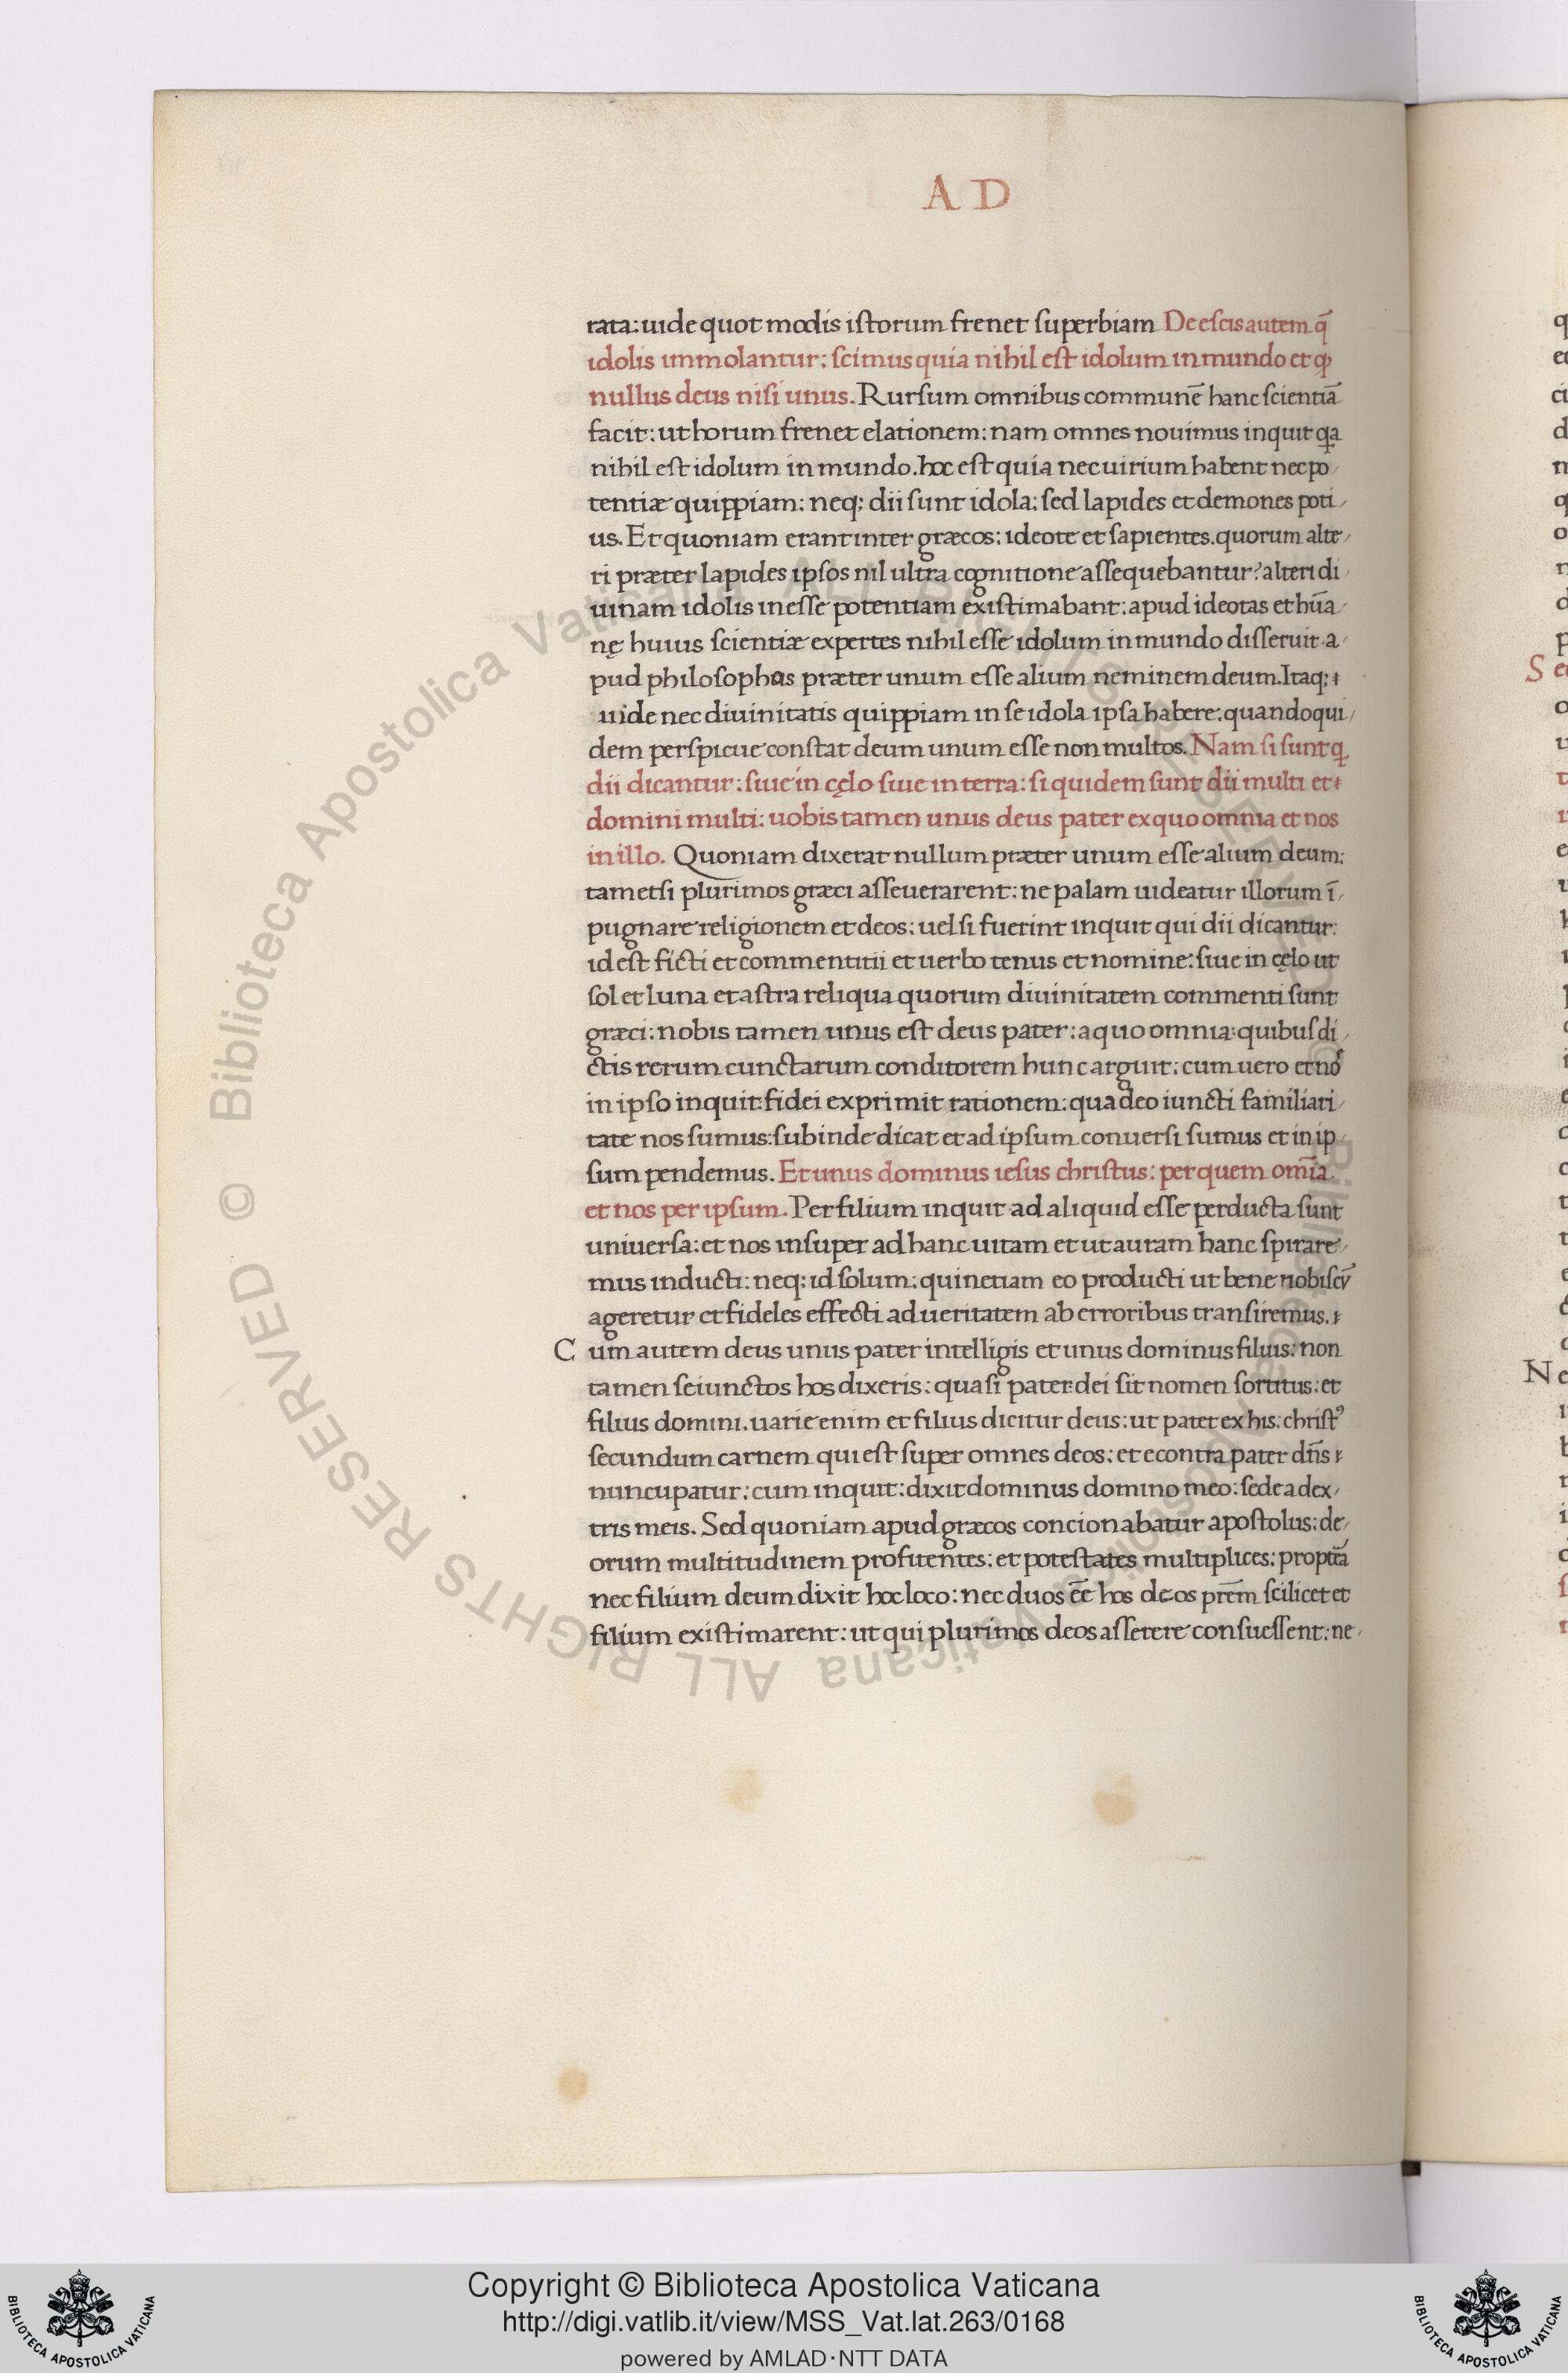 A D
rata: uide quot modis istorum frenet superbiam De escis autem q̄
idolis immolantur: scimus quia nihil est idolum in mundo et ꝙ
nullus deus nisi unus. Rursum omnibus communē hanc scientiā
facit: ut horum frenet elationem: nam omnes nouimus inquit qa
nihil est idolum in mundo. hoc est quia nec uirium habent nec po
tentiæ quippiam: neq; dii sunt idola: sed lapides et demones poti
us. Et quoniam erant inter græcos: ideote et sapientes. quorum alte
ri præter lapides ipsos nil ultra cognitione assequebantur? alteri di
uinam idolis inesse potentiam existimabant: apud ideotas et hūa
nę huius scientiæ expertes nihil esse idolum in mundo disseruit a
pud philosophos præter unum esse alium neminem deum. Itaq;
uide nec diuinitatis quippiam in se idola ipsa habere: quandoqui
dem perspicue constat deum unum esse non multos. Nam si sunt q
dii dicantur: siue in cęlo siue in terra: si quidem sunt dii multi et
domini multi: uobis tamen unus deus pater ex quo omnia et nos
in illo. Quoniam dixerat nullum præter unum esse alium deum:
tametsi plurimos græci asseuerarent: ne palam uideatur illorum ī
pugnare religionem et deos: uel si fuerint inquit qui dii dicantur:
id est ficti et commentitii et uerbo tenus et nomine: siue in cęlo ut
sol et luna et astra reliqua quorum diuinitatem commenti sunt
græci: nobis tamen unus est deus pater: a quo omnia: quibus di
ctis rerum cunctarum conditorem hunc arguit: cum uero et nos
in ipso inquit: fidei exprimit rationem: qua deo iuncti familiari
tate nos sumus: subinde dicat et ad ipsum conuersi sumus et in ip
sum pendemus. Et unus dominus iesus christus: per quem omīa
et nos per ipsum. Per filium inquit ad aliquid esse perducta sunt
uniuersa: et nos insuper ad hanc uitam et ut auram hanc spirare
mus inducti: neq; id solum: quinetiam eo producti ut bene nobiscū
ageretur et fideles effecti ad ueritatem ab erroribus transiremus.
Cum autem deus unus pater intelligis et unus dominus filius: non
tamen seiunctos hos dixeris: quasi pater: dei sit nomen sortitus: et
filius domini. uarie enim et filius dicitur deus: ut patet ex his. christꝰ
secundum carnem qui est super omnes deos: et econtra pater dn̄s
nuncupatur: cum inquit: dixit dominus domino meo: sede a dex
tris meis. Sed quoniam apud græcos concionabatur apostolus: de
orum multitudinem profitentes: et potestates multiplices: propterea
nec filium deum dixit hoc loco: nec duos ēē hos deos prēm scilicet et
filium existimarent: ut qui plurimos deos asserere consuessent: ne
© Biblioteca Apostolica Vaticana ALL RIGHTS RESERVED
© Biblioteca Apostolica Vaticana ALL RIGHTS RESERVED
Copyright © Biblioteca Apostolica Vaticana
http://digi.vatlib.it/view/MSS_Vat.lat.263/0168
powered by AMLAD·NTT DATA
BIBLIOTECA APOSTOLICA VATICANA
BIBLIOTECA APOSTOLICA VATICANA